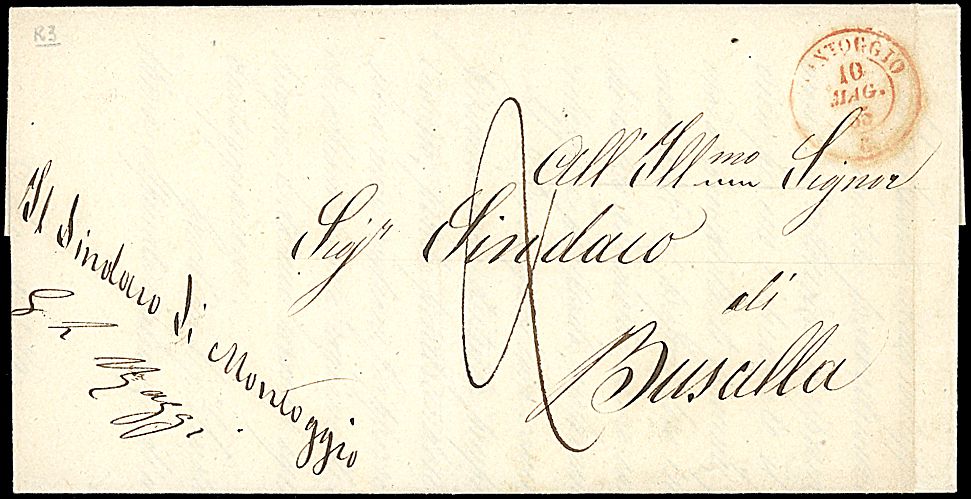 R3
MONTOGGIO
10
MAG.
All' Ill.mo Signor
Sig.r Sindaco
di
Busalla
Il Sindaco di Montoggio